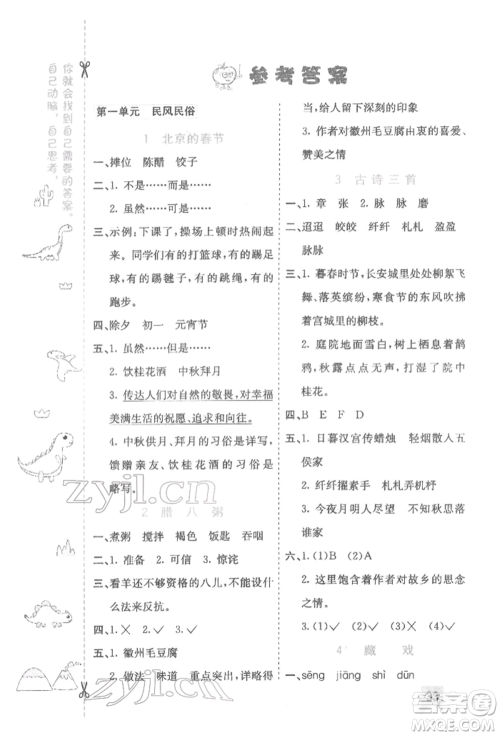 参考答案
你就会找到自己需要的答案。
自己动脑，自己思考，
第一单元 民风民俗
1 北京的春节
一、摊位 陈醋 饺子
二、1. 不是……而是……
2. 虽然……可是……
三、示例：下课了，操场上顿时热闹起
来。同学们有的打篮球，有的踢足
球，有的踢毽子，有的跳绳，有的
跑步。
四、除夕 初一 元宵节
五、1. 虽然……但……
2. 饮桂花酒 中秋拜月
3. 传达人们对自然的敬畏，对幸福
美满生活的祝愿、追求和向往。
4. 中秋供月、拜月的习俗是详写，
馈赠亲友、饮桂花酒的习俗是
略写。
2 腊八粥
一、煮粥 搅拌 褐色 饭匙 吞咽
二、1. 准备 2. 可信 3. 惊诧
三、看羊还不够资格的八儿，不敢想什
么法来反抗。
四、1. ✕ 2. ✓ 3. ✓
五、1. 徽州毛豆腐
2. 做法 味道 重点突出，详略得
当，给人留下深刻的印象
3. 作者对徽州毛豆腐由衷的喜爱、
赞美之情
3 古诗三首
一、1. 章 张 2. 脉 脉 磨
二、迢迢 皎皎 纤纤 札札 盈盈
脉脉
三、1. 暮春时节，长安城里处处柳絮飞
舞、落英缤纷，寒食节的东风吹拂
着宫城里的柳枝。
2. 庭院地面雪白，树上栖息着鹊
鸦，秋露点点无声，打湿了院中
桂花。
四、B E F D
五、1. 日暮汉宫传蜡烛 轻烟散入五
侯家
2. 纤纤擢素手 札札弄机杼
3. 今夜月明人尽望 不知秋思落
谁家
六、1. (1)B (2)A
2. 诗里饱含着作者对故乡的思念
之情。
3. (1)✓ (2)✓ (3)✕ (4)✓
4 藏戏
一、sēng jiāng shì dùn
zyjl.cn
zyjl.cn
答案圈
MXQE.COM